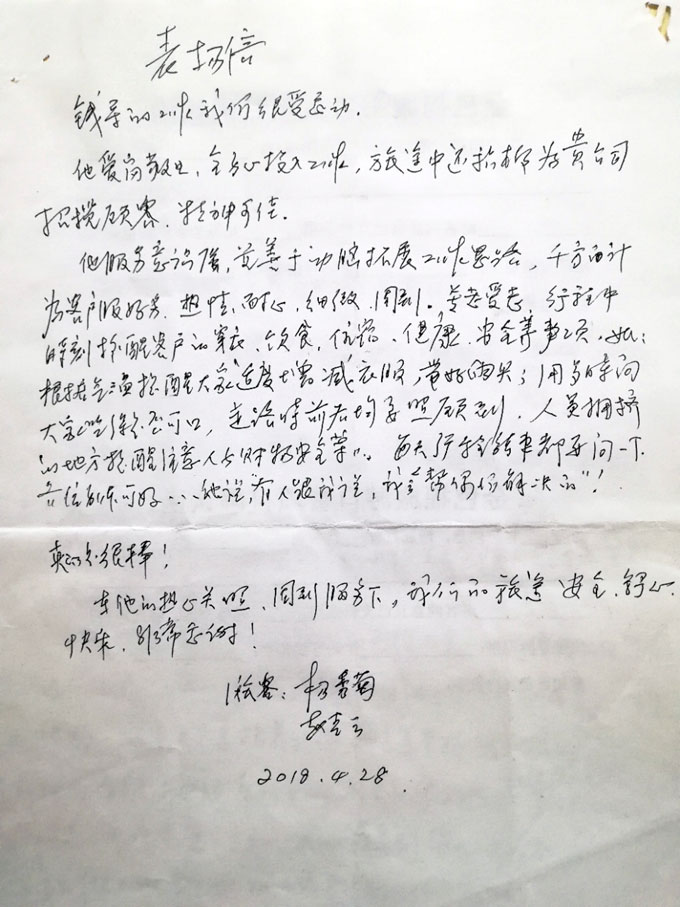 表扬信
钱导的工作我们很受感动.
他爱岗敬业、全身心投入工作，旅途中还抽暇为贵公司
招揽顾客、精神可佳.
他服务意识强，并善于动脑拓展工作思路，千方百计
为客户服好务、热情、耐心、细微、周到。尊老爱老，行程中
时刻提醒客户的穿衣、饮食、住宿、健康、安全等事项，如：
根据气温提醒大家适度增减衣服，带好雨具；用餐时问
大家吃得是否可口，走路时前后均要照顾到，人员拥挤
的地方提醒注意人与财物安全等》。每天
各位身体可好……他说，有人跟我说，我会帮你们解决的"！
真的很棒！
在他的热心关照、周到服务下，我们的旅途安全、舒心、
快乐，非常感谢！
旅客：杨秀菊
2018.4.28.